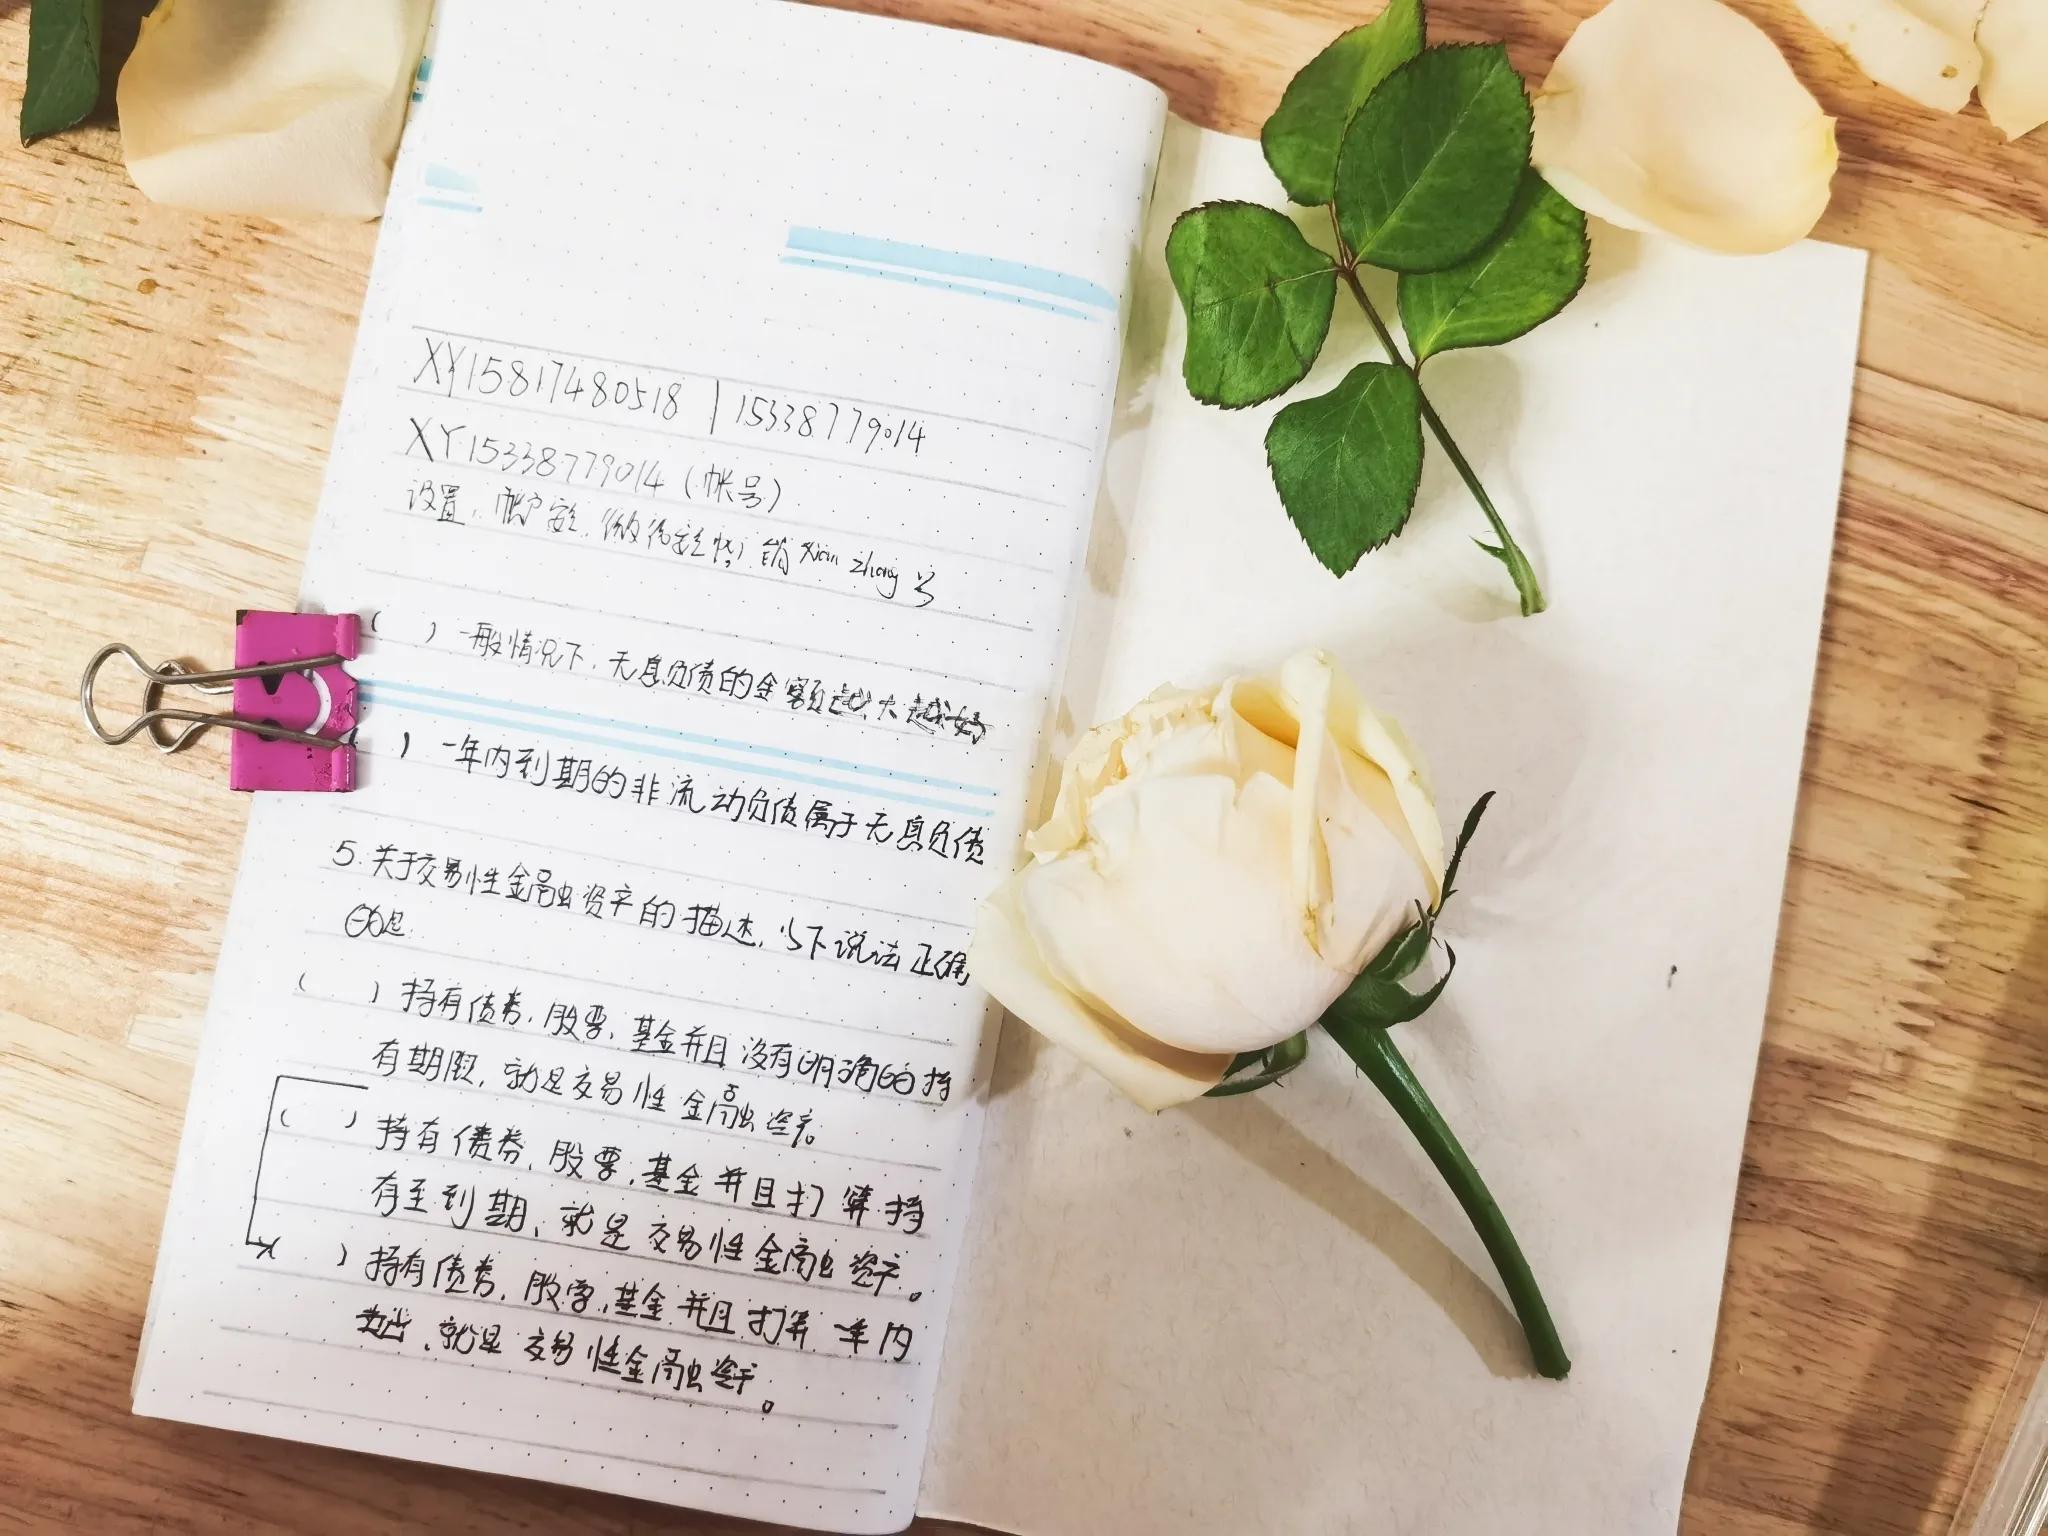 XY15817480518 | 15338779014
XY15338779014（帐号）
设置、帐户安全、微信 销 xian zhang 号
（ ）一般情况下、无息负债的金额越大越好
）一年内到期的非流动负债属于无息负债
5.关于交易性金融资产的描述、以下说法正确
的是
（ ）持有债券、股票、基金并且没有明确的持
有期限、就是交易性金融资产。
（ ）持有债券、股票、基金并且打算持
有至到期、就是交易性金融资产。
）持有债券、股票、基金并且打算一年内
卖出、就是交易性金融资产。